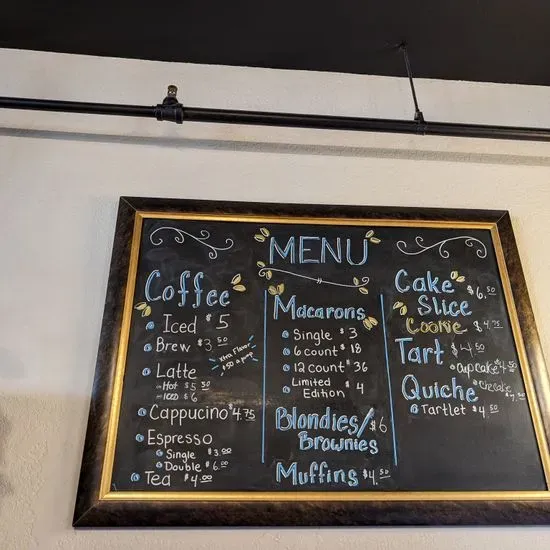 MENU
Coffee
Iced $5
Brew $3.50
Xtra Flavor
$.50 a pump
Latte
Hot $5.50
Iced $6
Cappucino $4.75
Espresso
Single $3.00
Double $6.00
Tea $4.00
Macarons
Single $3
6 count $18
12 count $36
Limited
Edition $4
Blondies/
Brownies $6
Muffins $4.50
Cake
Slice $6.50
Cookie $4.75
Tart $4.50
Cupcake $4.50
Quiche
Tartlet $4.50